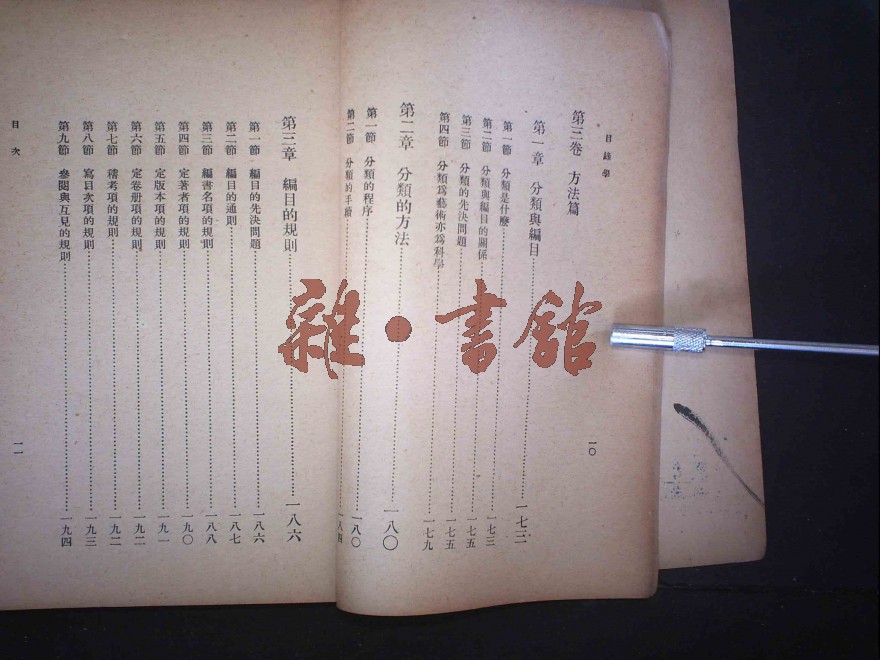 目錄學
第三卷 方法篇
第一章 分類與編目 一七三
第一節 分類是什麼 一七三
第二節 分類與編目的關係 一七三
第三節 分類的先決問題 一七五
第四節 分類爲藝術亦爲科學 一七九
第二章 分類的方法 一八〇
第一節 分類的程序 一八〇
第二節 分類的手續 一八四
一〇
第三章 編目的規則 一八六
第一節 編目的先決問題 一八六
第二節 編目的通則 一八七
第三節 編書名項的規則 一八八
第四節 定著者項的規則 一九〇
第五節 定版本項的規則 一九一
第六節 定卷册項的規則 一九二
第七節 稽考項的規則 一九二
第八節 寫目次項的規則 一九三
第九節 參閱與互見的規則 一九四
目次
一一
雜·書館